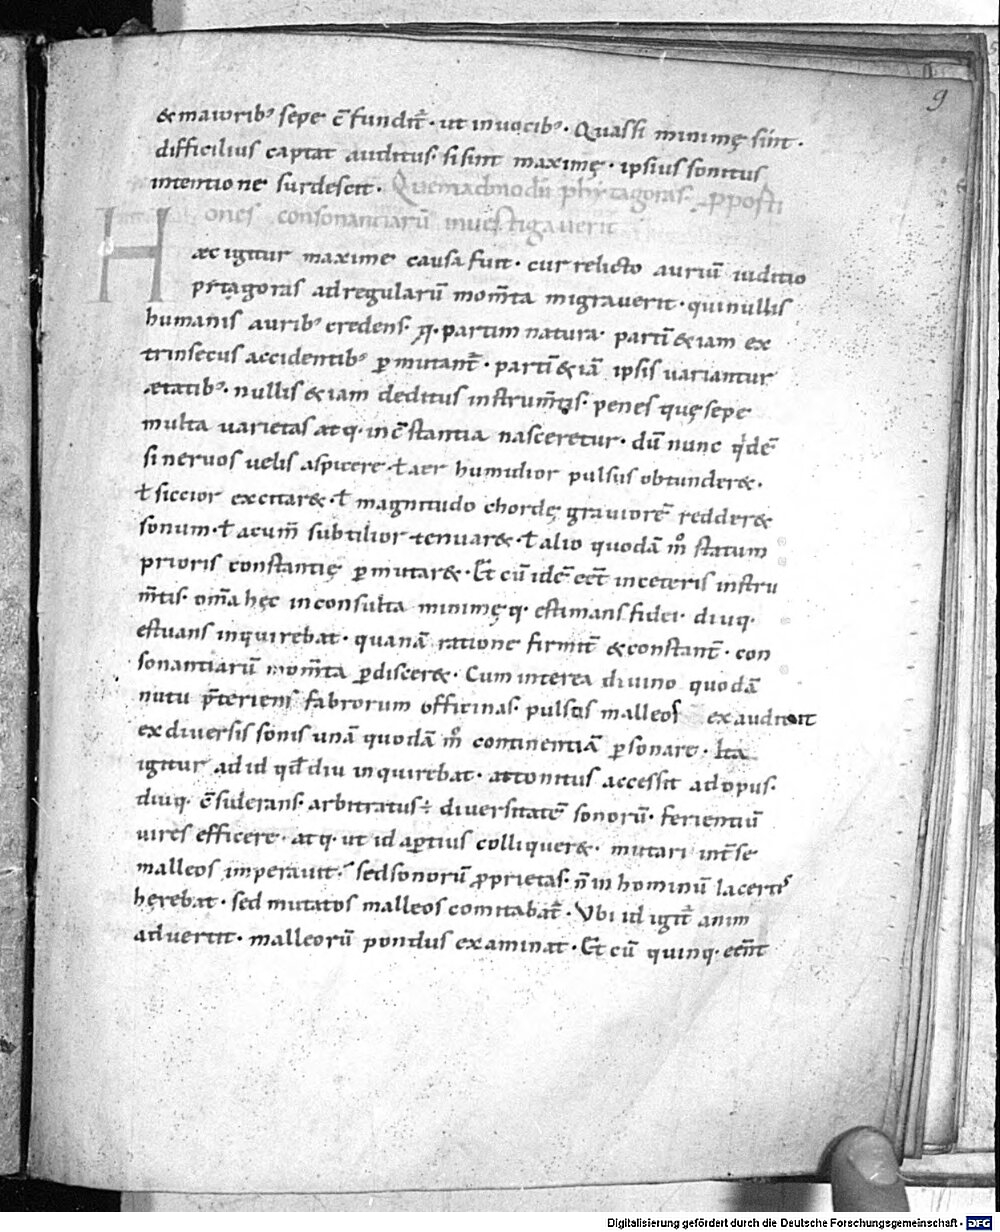 9
& maiorib᾽ sepe c̄fundit̄· ut inuocib᾽· Quassi minimę sint·
difficilius captat auditus· si sint maximę· ipsius sonitus
intentione surdescit· Quemadmodū phytagoras· ꝓposti
ones consonantiarū inuestigauerit
Hæc igitur maxime causa fuit· cur relicto auriū iuditio
pitagoras ad regularū mom̄ta migrauerit· qui nullis
humanis aurib᾽ credens· q̨· partim natura· partī & iam ex
trinsecus accidentib᾽ ꝑmutant̄· partī & iā ipsis uariantur
ætatib᾽· nullis & iam deditus instrum̄tis· penes quę sepe
multa uarietas atq· inc̄stantia nasceretur· dū nunc qͥdē
si neruos uelis aspicere· ł aer humidior pulsus obtunder&·
ł siccior excitar&· ł magnitudo chordę grauiorē redder&
sonum· ł acum̄ subtilior tenuar&· ł alio quodā m̊ statum
prioris constantię ꝑmutar&· Et cū idē eēt in ceteris instru
m̄tis· om̄a hęc inconsulta minimęq· estimans fidei· diuq·
estuans inquirebat· quanā ratione firmit̄ & constant̄· con
sonantiarū mom̄ta ꝑdiscer&· Cum interea diuino quodā
nutu p̄teriens fabrorum officinas· pulsos malleos exaudiuit
ex diuersis sonis unā quodā m̊ continentiā ꝑsonare· Ita
igitur ad id qđ diu inquirebat· attonitus accessit ad opus·
diuq· c̄siderans· arbitratus ÷ diuersitatē sonorū· ferientiū
uires efficere· atq· ut id aꝑtius colliquer&· mutari int̄ se
malleos imperauit· sed sonorū ꝓprietas· n̄ in hominū lacertis
hęrebat· sed mutatos malleos comitabat̄· Vbi id igit̄ anim
aduertit· malleorū pondus examinat· Et cū quinq· eēnt
Digitalisierung gefördert durch die Deutsche Forschungsgemeinschaft - DFG